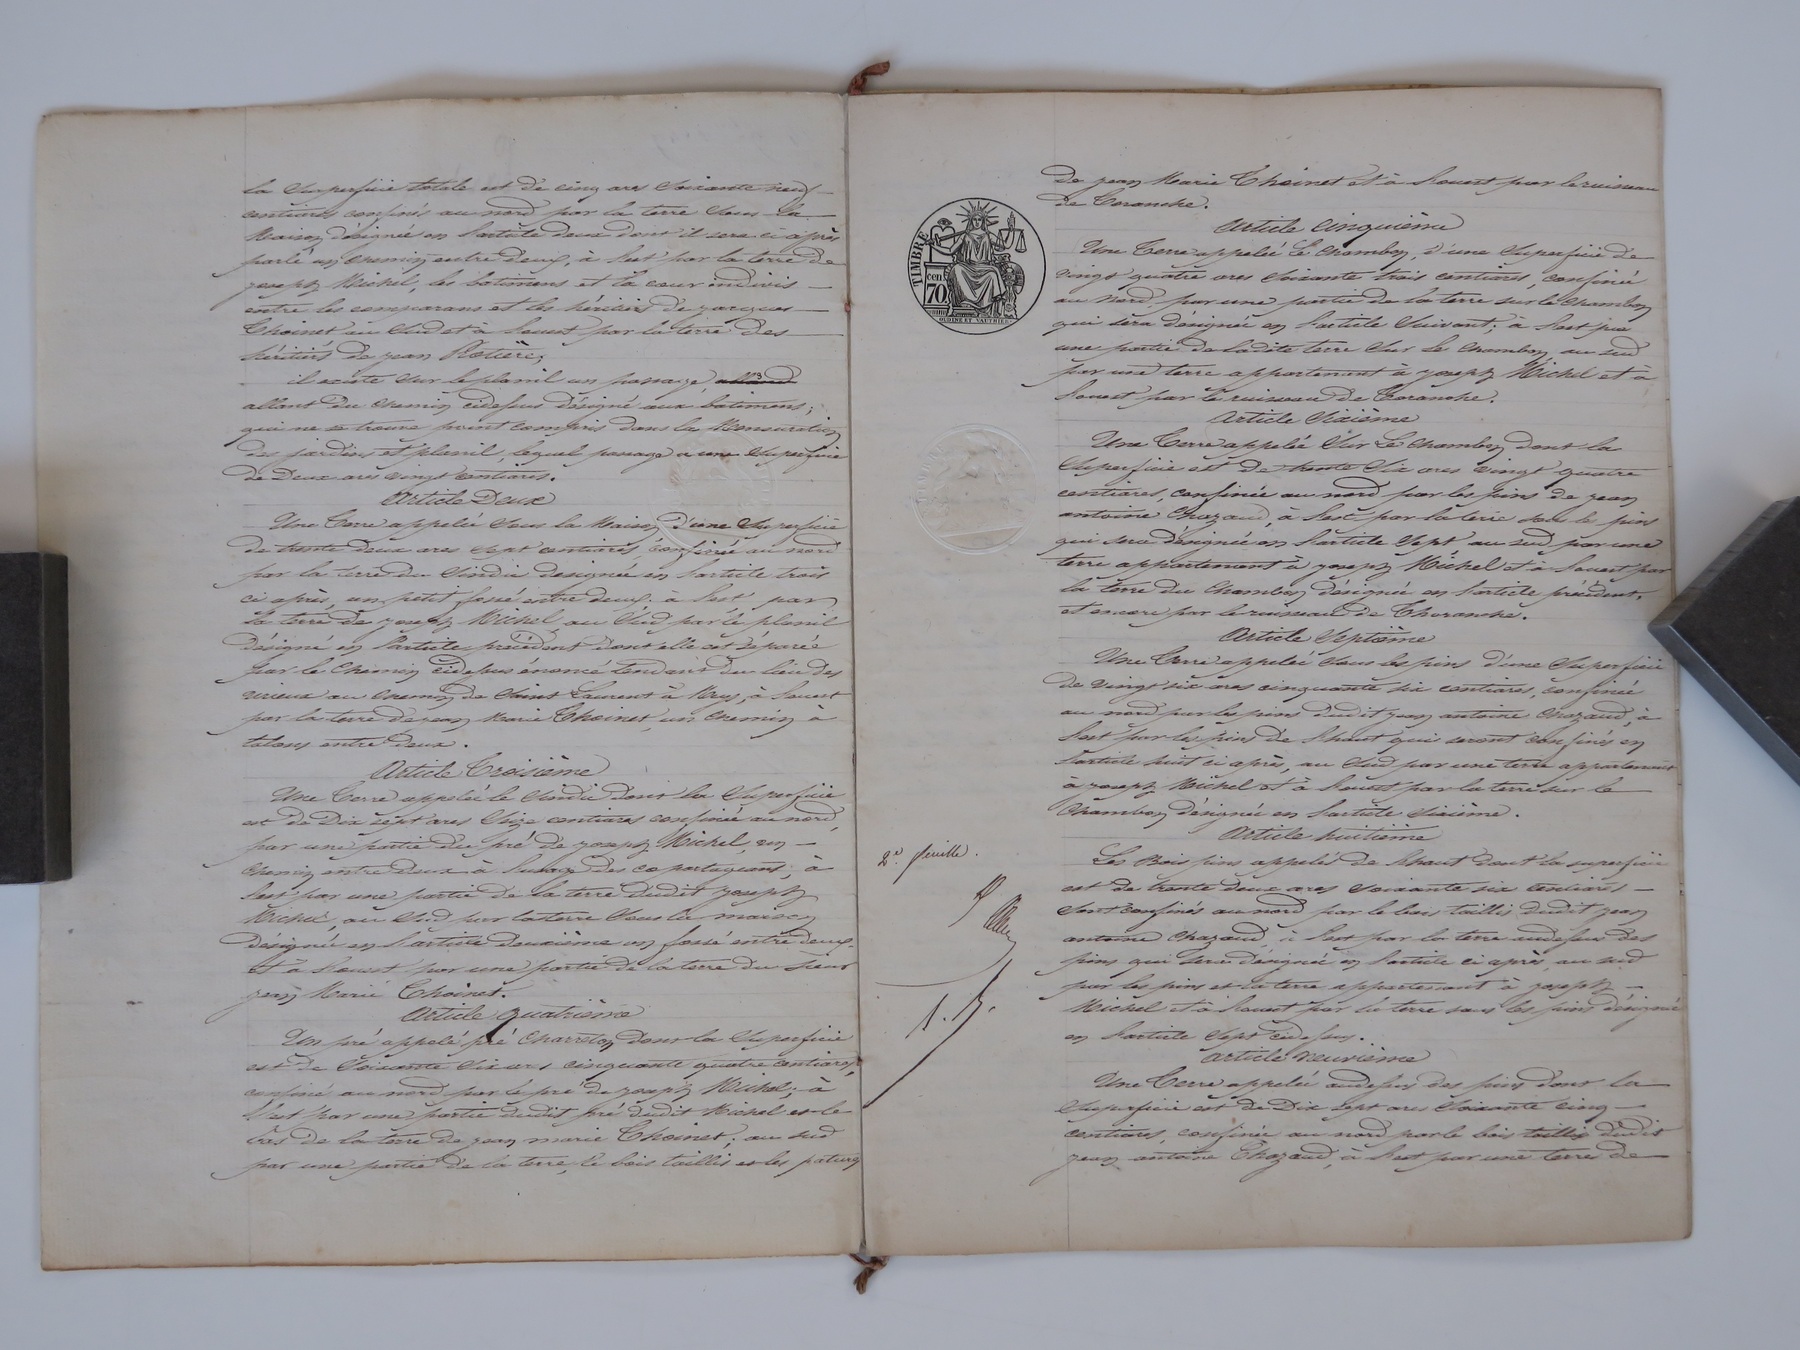 la Superficie totale est de cinq ares soixante neuf
centiares confinés au nord par la terre sous la
Maison désignée en l'article deux dont il sera ci après
parlé un chemin entre deux, à l'est par la terre de
joseph Michel, les batimens et la cour indivis
entre les comparans et les héritiers de jacques
Thoinet au Sud et à l'ouest par la terre des
héritiers de jean
il existe sur le plenil un passage
allant du chemin cidessus désigné aux batimens;
qui ne se trouve point compris dans la Mensuration
des jardin et plenil, lequel passage a une Superficie
de Deux ares vingt centiares.
Article Deux
Une Terre appelée sous la Maison d'une Superficie
de trente deux ares sept centiares confinée au nord
par la terre du Sindic designée en l'article trois
ci après, un petit fossé entre deux. à l'est par
la terre de joseph Michel au Sud par le plenil
désigné en l'article précédent dont elle est séparée
par le Chemin cidessus énoncé tendant du lieu des
vieux au chemin de Saint Laurent à Viry, à l'ouest
par la terre de jean Marie Thoinet un chemin à
talons entre deux.
Article Troisième
Une Terre appelée le Sindic dont la Superficie
est de Dix sept ares Seize centiares confinée au nord,
par une partie du pré de joseph Michel, un
chemin entre deux à l'usage des copartageans; à
l'est par une partie de la terre dudit joseph
Michel, au Sud par la terre sous la maison
désignée en l'article deuxième un fossé entre deux.
et à l'ouest par une partie de la terre du Sieur
jean Marie Thoinet.
Article quatrième
Un pré appelé pré Charreton dont la Superficie
est de Soixante Six ares cinquante quatre centiares,
confiné au nord par le pré de joseph Michel; à
l'est par une partie dudit pré dudit Michel et le
bas de la terre de jean marie Thoinet; au sud
par une partie de la terre, le bois taillis et les patures
de jean Marie Thoinet et à l'ouest par le ruisseau
de Toranche.
TIMBRE
cen
70
OUDINE ET VAUTHIER
Article Cinquième
Une Terre appelée Le Chambon, d'une Superficie de
vingt quatre ares soixante trois centiares, confinée
au Nord par une partie de la terre sur le Chambon
qui sera désignée en l'article suivant; à l'est par
une partie de ladite terre sur Le Chambon au sud
par une terre appartenant à joseph Michel et à
l'ouest par le ruisseau de Toranche.
Article Sixième
Une Terre appelée Sur Le Chambon dont la
Superficie est de trente Six ares vingt quatre
centiares, confinée au nord par les pins de jean
antoine Chazaud, à l'est par la terre sous les pins
qui sera désignée en l'article Sept au sud par une
terre appartenant à joseph Michel et à l'ouest par
la terre du Chambon désignée en l'article précédent.
et encore par le ruisseau de Thoranche.
Article Septième
Une Terre appelée sous les pins d'une Superficie
de vingt six ares cinquante six centiares, confinée
au nord par les pins dudit jean antoine Chazaud, à
l'est par les pins de l'haut qui seront confinés en
l'article huit ci après, au Sud par une terre appartenant
à joseph Michel et à l'ouest par la terre sur le
Chambon désignée en l'article Sixième.
Article huitième
Les Bois pins appelés de l'haut dont la superficie
est de trente deux ares soixante six centiares
sont confinés au nord par le bois taillis dudit jean
antoine Chazaud, à l'est par la terre audessus des
pins qui sera désignée en l'article ci après, au sud
par les pins et la terre appartenant à joseph
Michel et à l'ouest par la terre sous les pins désignée
en l'article Sept cidessus.
Article neuvième
Une Terre appelée audessus des pins dont la
Superficie est de Dix sept ares Soixante cinq
centiares, confinée au nord par le bois taillis dudit
jean antoine Chazaud, à l'est par une terre de
2e. feuille.